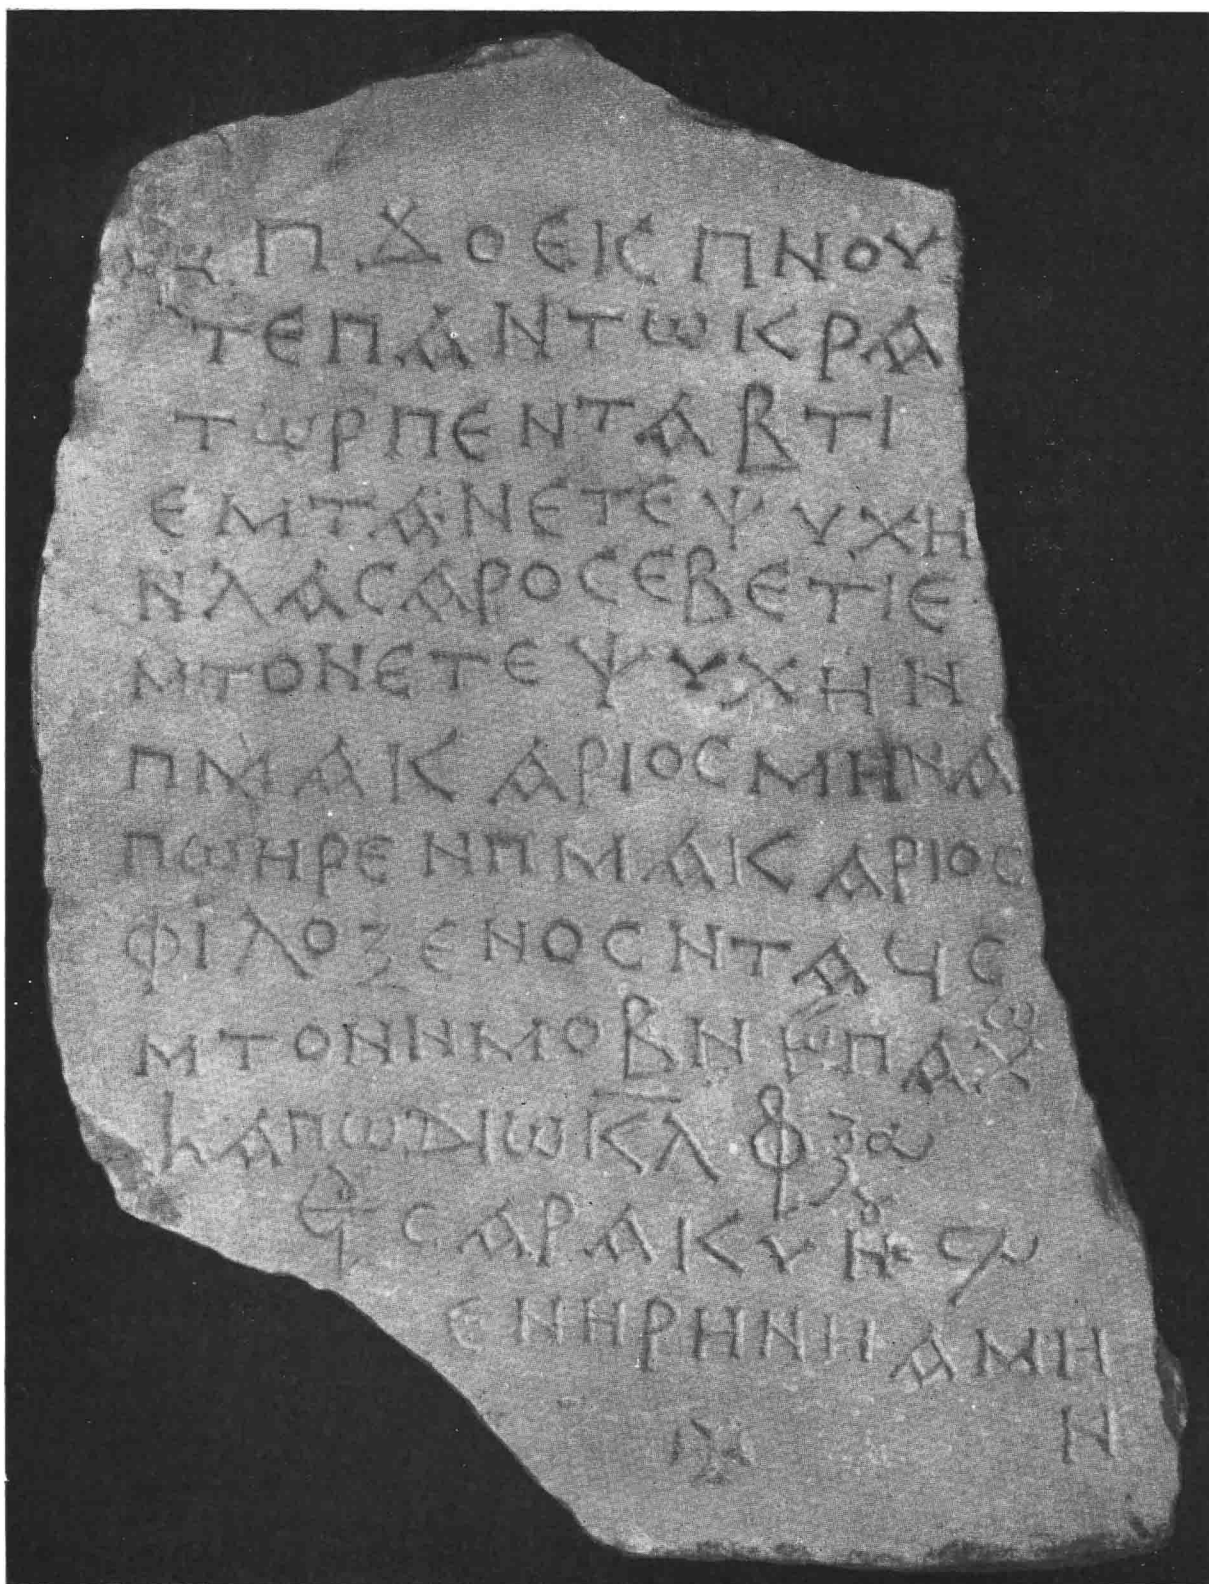 ⲠϪⲞⲈⲒⲤ ⲠⲚⲞⲨ
ⲦⲈ ⲠⲀⲚⲦⲰⲔⲢⲀ
ⲦⲰⲢ ⲠⲈⲚⲦⲀⲂϮⲒ
ⲈⲘⲦⲀⲚ ⲈⲦⲈⲮⲨⲬⲎ
ⲚⲖⲀⲤⲀⲢⲞⲤ ⲈⲂⲈϮⲈ
ⲘⲦⲞⲚ ⲈⲦⲈⲮⲨⲬⲎ Ⲛ
ⲠⲘⲀⲔⲀⲢⲒⲞⲤ ⲘⲎⲚⲀ
ⲠϢⲎⲢⲈ ⲚⲠⲘⲀⲔⲀⲢⲒⲞⲤ
ⲪⲒⲖⲞⲜⲈⲚⲞⲤ ⲚⲦⲀϤⲤ
ⲘⲦⲞⲚ ⲚⲘⲞⲂ Ⲛ ⲠⲀⲬⲰ
ⲀⲠⲰ ⲆⲒⲰⲔⲖ
ⲤⲀⲢⲀⲔⲨ
ⲈⲚ ⲎⲢⲎⲚⲎ ⲀⲘⲎ
Ⲛ